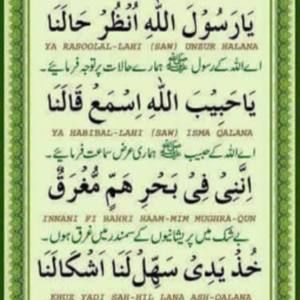 يَارَسُوْلَ اللهِ اُنْظُرْ حَالَنَا
YA RASOOLAL-LAHI (SAW) UNZUR HALANA
اے اللہ کے رسول ﷺ ہمارے حالات پر توجہ فرمائیے۔
يَاحَبِيْبَ اللهِ اِسْمَعْ قَالَنَا
YA HABIBAL-LAHI (SAW) ISMA QALANA
اے اللہ کے حبیب ﷺ ہماری عرض سماعت فرمائیے۔
اِنَّنِىْ فِىْ بَحْرِ هَمٍّ مُّغْرَقٌ
INNANI FI BAHRI HAAM-MIM MUGHRA-QUN
بے شک میں پریشانیوں کے سمندر میں غرق ہوں۔
خُذْ يَدِىْ سَهِّلْ لَنَا اَشْكَالَنَا
KHUZ YADI SAH-HIL LANA ASH-QALANA